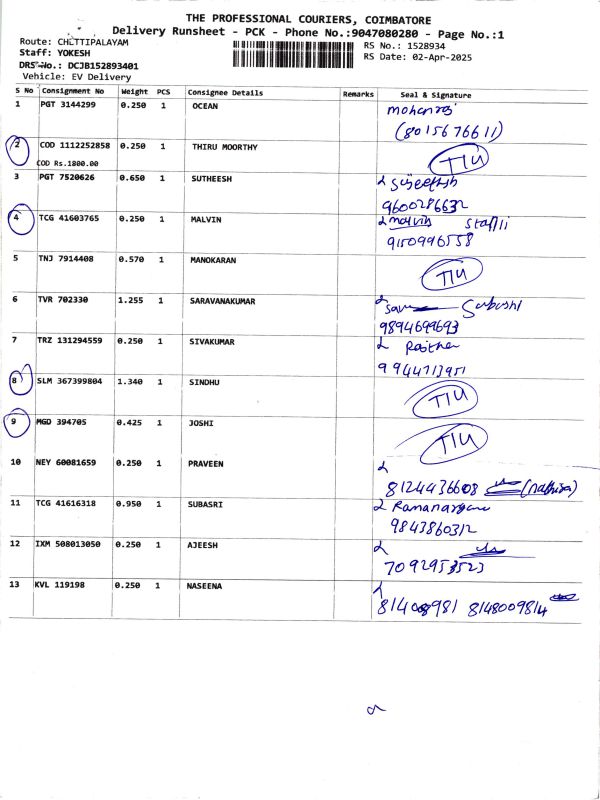 THE PROFESSIONAL COURIERS, COIMBATORE
Delivery Runsheet - PCK - Phone No.:9047080280 - Page No.:1
Route: CHETTIPALAYAM
Staff: YOKESH
DRS No.: DCJB152893401
Vehicle: EV Delivery
RS No.: 1528934
RS Date: 02-Apr-2025
S No Consignment No Weight PCS Consignee Details Remarks Seal & Signature
1 PGT 3144299 0.250 1 OCEAN
(8015676611)
2 COD 1112252858 0.250 1 THIRU MOORTHY TIU
COD Rs.1800.00
3 PGT 7520626 0.650 1 SUTHEESH
9600286632
4 TCG 41603765 0.250 1 MALVIN malvin
9150996558
5 TNJ 7914408 0.570 1 MANOKARAN TIU
6 TVR 702330 1.255 1 SARAVANAKUMAR
9894699693
7 TRZ 131294559 0.250 1 SIVAKUMAR
9944713951
8 SLM 367399804 1.340 1 SINDHU TIU
9 MGD 394705 0.425 1 JOSHI TIU
10 NEY 60081659 0.250 1 PRAVEEN
8124436608
11 TCG 41616318 0.950 1 SUBASRI
9843860312
12 IXM 508013050 0.250 1 AJEESH
13 KVL 119198 0.250 1 NASEENA
8148009814